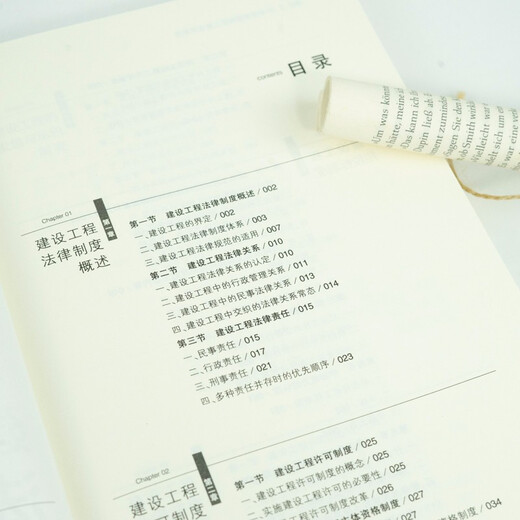 contents
目录
Um was könnt
hätte, meine
Das kann ich
Dupin ließ ab.
ment zumindes
lagen. Sie den
Smith wirkli
Vielleicht war
delt sich um e
war eine vers
Chapter 01
第一章
建设工程
法律制度
概述
第一节 建设工程法律制度概述/002
一、建设工程的界定/002
二、建设工程法律制度体系/003
三、建设工程法律规范的适用/007
第二节 建设工程法律关系/010
一、建设工程法律关系的认定/010
二、建设工程中的行政管理关系/011
三、建设工程中的民事法律关系/013
四、建设工程中交织的法律关系常态/014
第三节 建设工程法律责任/015
一、民事责任/015
二、行政责任/017
三、刑事责任/021
四、多种责任并存时的优先顺序/023
Chapter 02
第二章
建设工程
许可制度
第一节 建设工程许可制度/025
一、建设工程许可制度的概念/025
二、实施建设工程许可的必要性/025
三、建设工程许可制度改革/026
体资格制度/027
资格制度/034